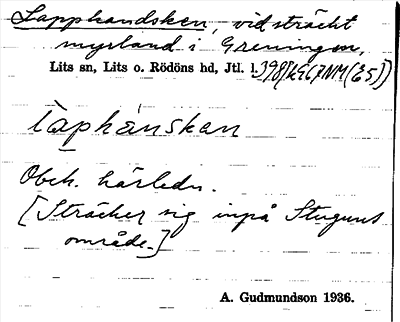 Lapphandsken, vidsträckt
myrland i Greningen,
Lits sn, Lits o. Rödöns hd, Jtl.
lap̀hánskan
Obek. härledn.
[Sträcker sig inpå Stuguns
område.]
A. Gudmundson 1936.